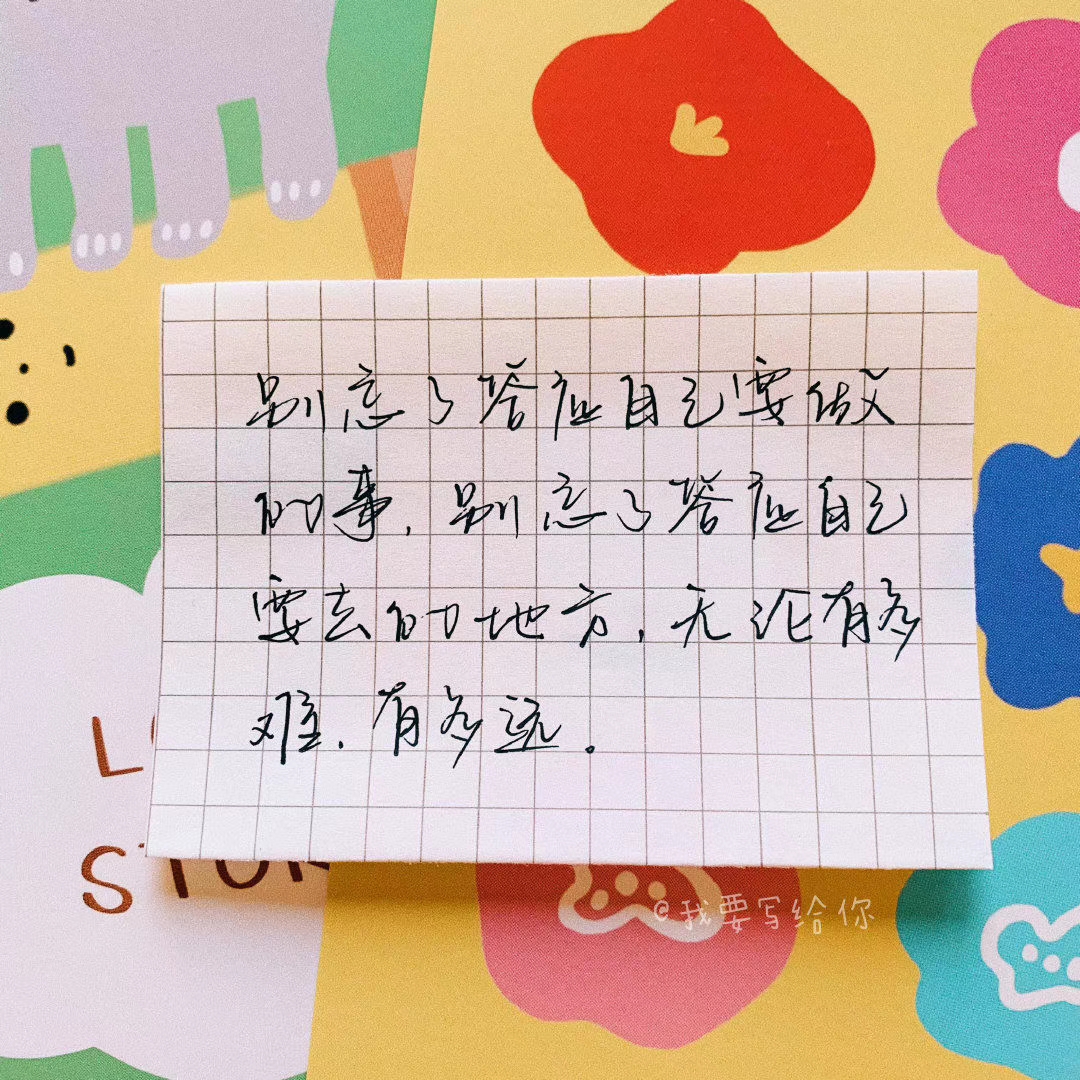 别忘了答应自己要做
的事,别忘了答应自己
要去的地方,无论有多
难,有多远。
@我要写给你